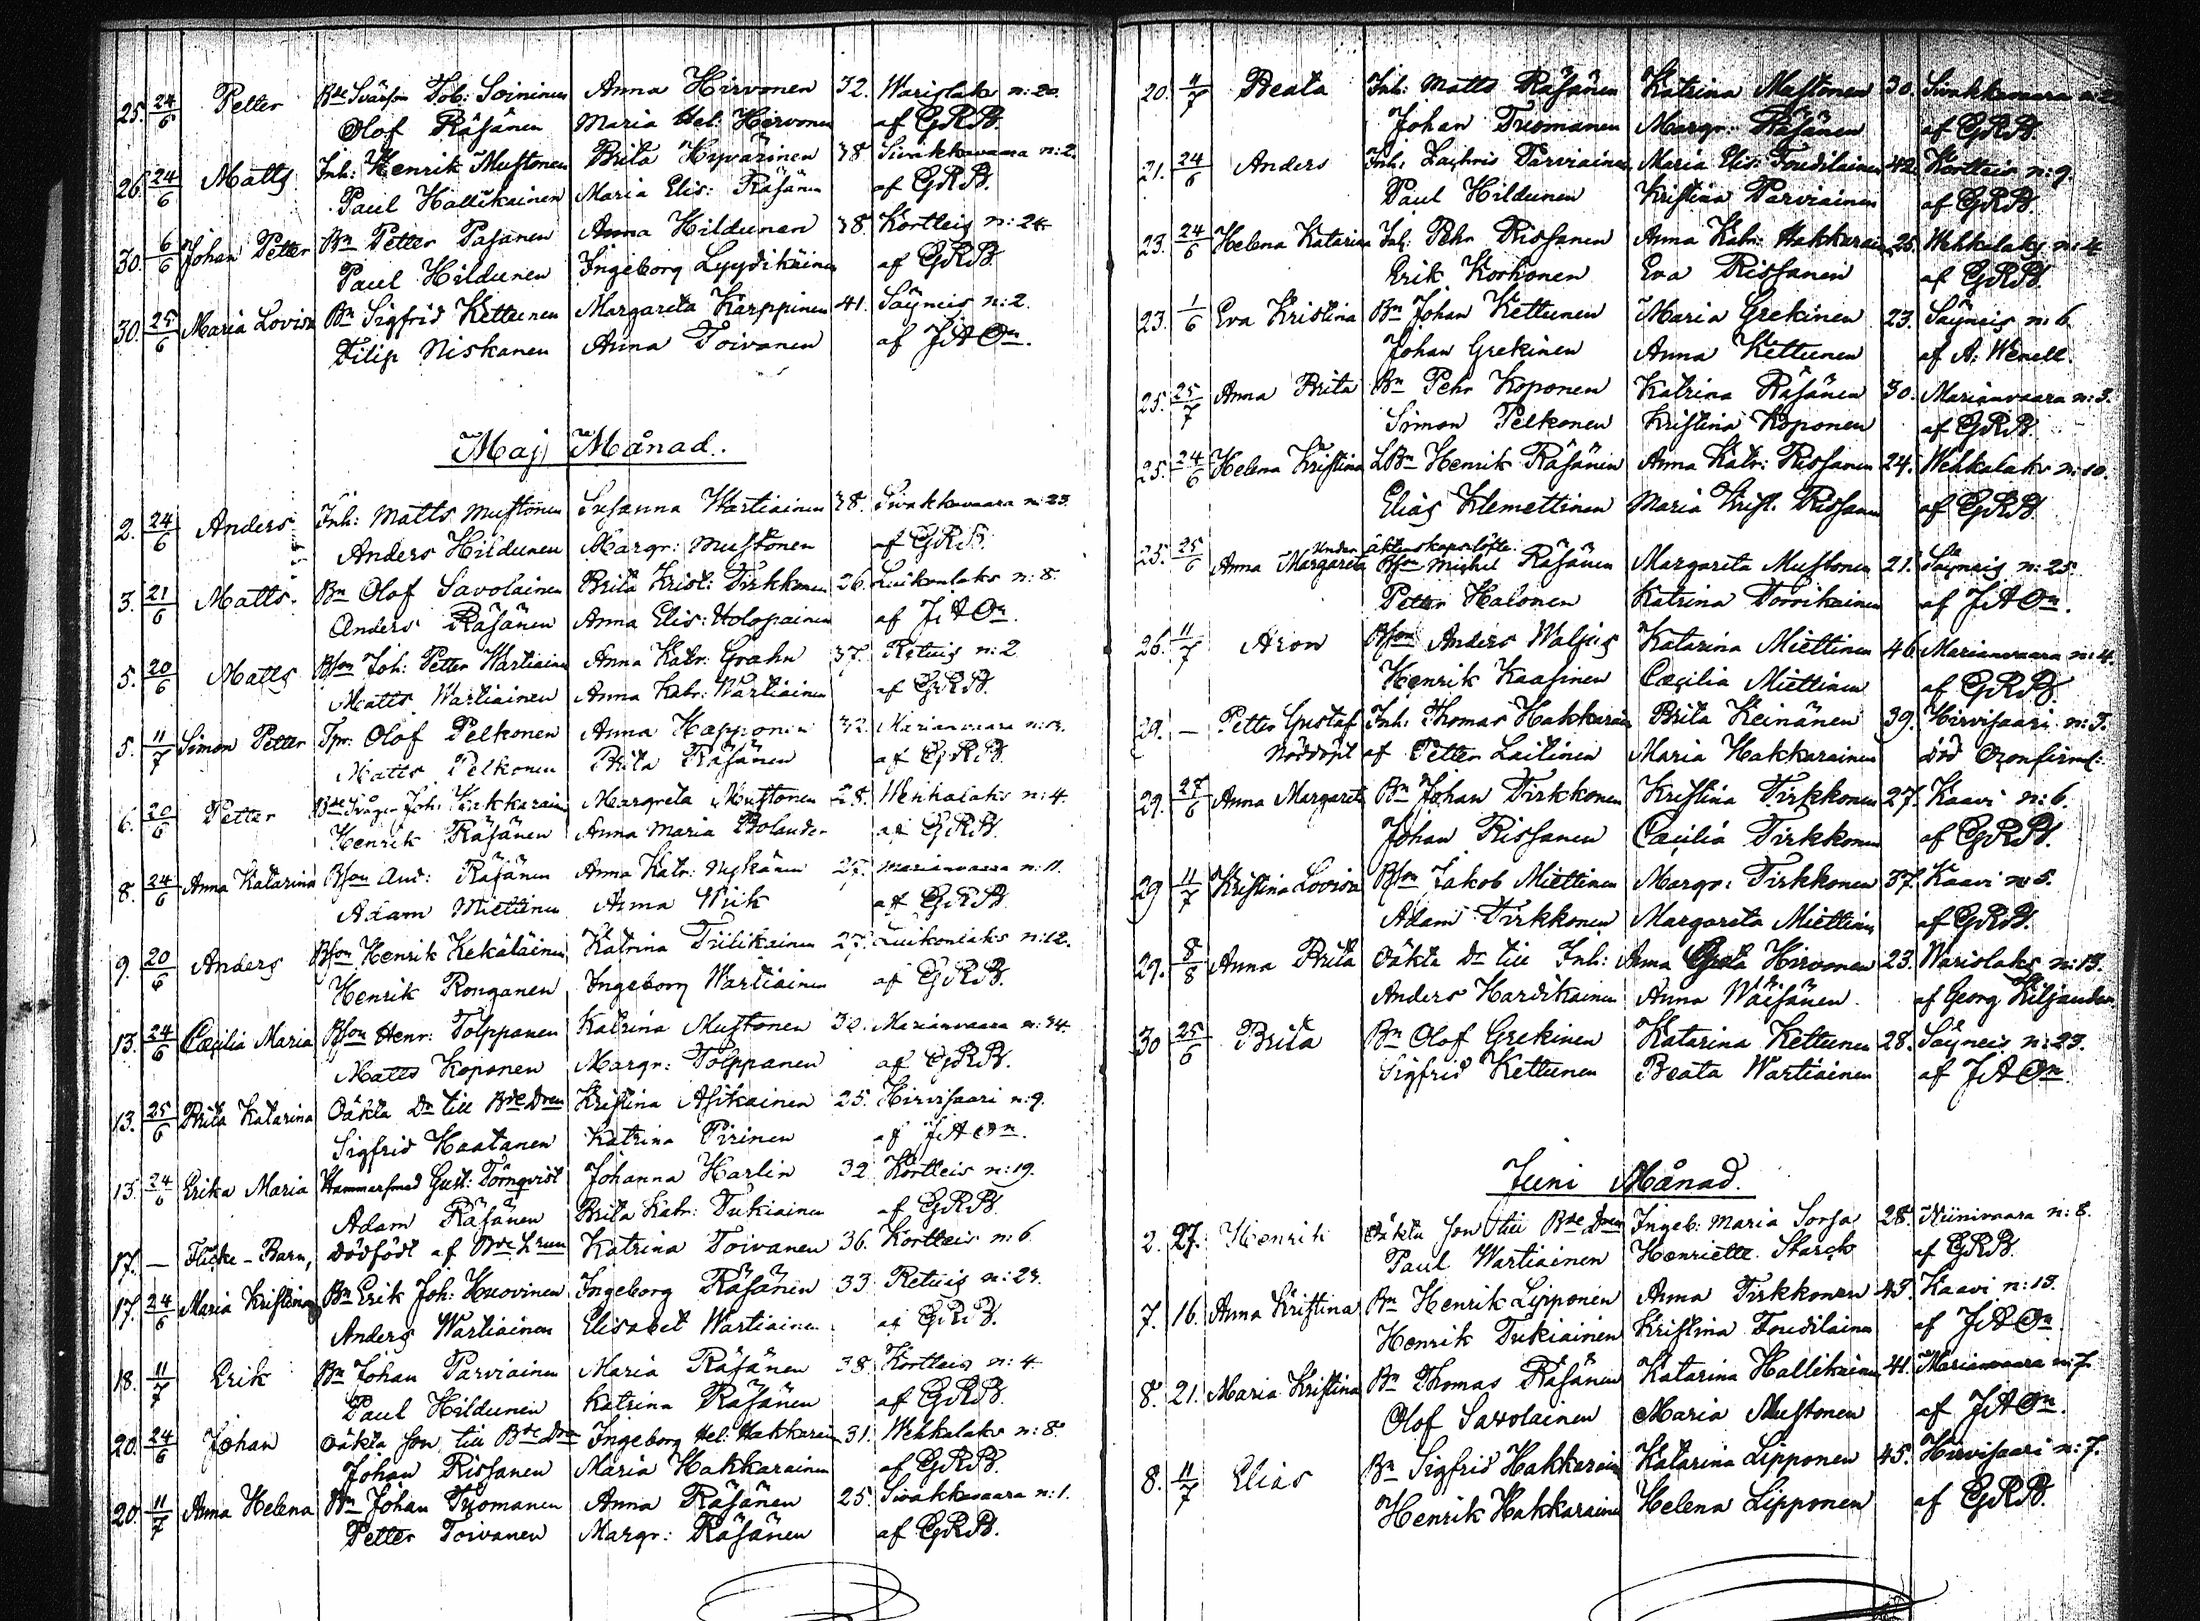 25. 24/6 Petter Bde Svärson Tob: Soininen Anna Hirvonen 32. Warislaks n: 20.
Olof Räsänen Maria Hel: Hirvonen af GRB.
26. 24/6 Matts Inh: Henrik Mustonen Brita Hyvärinen 38. Sivakkavaara n: 2.
Paul Hallikainen Maria Elis: Räsänen af GRB.
30. 6/6 Johan Petter Bn Petter Pasanen Anna Hildunen 38. Kortteis n: 24
Paul Hildunen Ingeborg Lyydikäinen af GRB.
30. 25/6 Maria Lovisa Bn Sigfrid Kettunen Margareta Karppinen 41. Säyneis n: 2.
Filip Niskanen Anna Toivanen af JAOn.
Maj Månad.
2. 24/6 Anders Inh: Matts Mustonen Susanna Wartiainen 38. Sivakkavaara n: 23.
Anders Hildunen Margr: Mustonen af GRB.
3. 21/6 Matts Bn Olof Savolainen Brita Krist: Tirkkonen 26. Luikonlaks n: 8.
Anders Räsänen Anna Elis: Holopainen af JAOn.
5. 20/6 Matts Bson Joh: Petter Wartiainen Anna Katr: Grahn 37. Retuis n: 2
Matts Wartiainen Anna Katr: Wartiainen af GRB.
5. 11/7 Simon Petter Tpr: Olof Pelkonen Anna Happonen 32. Marianvaara n: 13.
Matts Pelkonen Brita Räsänen af GRB.
6. 20/6 Petter Bde Svåger Joh: Hakkarain Margreta Mustonen 28. Wehkalaks n: 4.
Henrik Räsänen Anna Maria Bolander af GRB.
8. 24/6 Anna Katarina Bson And: Räsänen Anna Katr: Niskanen 25. Marianvaara n: 11.
Adam Miettinen Anna Wiik af GRB.
9. 20/6 Anders Bson Henrik Kekäläinen Katrina Tiilikainen 27. Luikonlaks n: 12.
Henrik Ronganen Ingeborg Wartiainen af GRB.
13. 24/6 Cæcilia Maria Bson Henr: Tolppanen Katrina Mustonen 30. Marianvaara n: 34.
Matts Koponen Margr: Tolppanen af GRB.
13. 25/6 Brita Katarina Oäkta Dr till Bde Dren Kristina Asikainen 25. Hirvisaari n: 9.
Sigfrid Haatanen Katrina Pirinen af JAOn.
15. 24/6 Erika Maria Hammarsmed Gust: Törnqvist Johanna Harlin 32 Kortteis n: 19.
Adam Räsänen Brita Katr: Tukiainen af GRB.
17. — Flicke-Barn, dödfödt af Bde Enkan Katrina Toivanen 36. Kortteis n: 6
17. 24/6 Maria Kristina Bn Erik Joh: Huovinen Ingeborg Räsänen 33. Retuis n: 23.
Anders Wartiainen Elisabet Wartiainen af GRB.
18. 11/7 Erik Bn Johan Parviainen Maria Räsänen 38. Kortteis n: 4.
Paul Hildunen Katrina Räsänen af GRB.
20. 24/6 Johan Oäkta son till Bde Dren Ingeborg Hel: Hakkarain 31. Wehkalaks n: 8.
Johan Rissanen Maria Hakkarainen af GRB.
20. 11/7 Anna Helena Bn Johan Tuomanen Anna Räsänen 25. Sivakkavaara n: 1.
Petter Toivanen Margr: Räsänen af GRB.
20. 11/7 Beata Inh: Matts Räsänen Katrina Mustonen 30. Sivakkavaara n: 2
Johan Tuomanen Margr: Räsänen af GRB.
21. 24/6 Anders Inh: Zachris Parviainen Maria Elis: Toudilainen 42. Kortteis n: 9.
Paul Hildunen Kristina Parviainen af GRB.
23. 24/6 Helena Katarina Inh: Pehr Rissanen Anna Katr: Hakkarain 25. Wehkalaks n: 4
Erik Korhonen Eva Rissanen af GRB.
23. 1/6 Eva Kristina Bn Johan Kettunen Maria Grekinen 23. Säyneis n: 6
Johan Grekinen Anna Kettunen af A: Wenell.
25. 25/7 Anna Brita Bn Pehr Koponen Katrina Räsänen 30. Marianvaara n: 3.
Simon Pelkonen Kristina Koponen af GRB.
25. 24/6 Helena Kristina LBn Henrik Räsänen Anna Katr: Rissanen 24. Wehkalaks n: 10.
Elias Klemettinen Maria Krist. Rissanen af GRB.
Under äktenskapslöfte.
25. 25/6 Anna Margareta Bson Michel Räsänen Margareta Mustonen 21. Säyneis n: 25.
Petter Halonen Katrina Torvikainen af JAOn.
26. 11/7 Aron Bson Anders Walpis Katarina Miettinen 46. Marianvaara n: 4.
Henrik Kaasinen Cæcilia Miettinen af GRB.
29. — Petter Gustaf Inh: Thomas Hakkarain Brita Keinänen 39. Hirvisaari n: 3.
Nöddöpt af Petter Laitinen Maria Hakkarainen död Oconfirm:
29. 27/6 Anna Margareta Bn Johan Tirkkonen Kristina Tirkkonen 27. Kaavi n: 6.
Johan Rissanen Cæcilia Tirkkonen af GRB.
29 11/7 Kristina Lovisa Bson Jakob Miettinen Margr: Tirkkonen 37. Kaavi n: 5.
Adam Tirkkonen Margareta Miettinen af GRB.
29. 8/8 Anna Brita Oäkta Dr till Inh: Anna Greta Hirvonen 23. Warislaks n: 13.
Anders Hardikainen Anna Wäisänen af Georg Kiljander.
30 25/6 Brita Bn Olof Grekinen Katarina Kettunen 28. Säyneis n: 23.
Sigfrid Kettunen Beata Wartiainen af JAOn.
Juni Månad.
2. 27. Henrik Oäkta son till Bde Dren Ingeb: Maria Sorsa 28. Niinivaara n: 8.
Paul Wartiainen Henriette Starck af GRB.
7. 16. Anna Kristina Bn Henrik Lipponen Anna Tirkkonen 43. Kaavi n: 15.
Henrik Tukiainen Kristina Toudilainen af JAOn
8. 21. Maria Kristina Bn Thomas Räsänen Katarina Hallikainen 41. Marianvaara n: 7.
Olof Savolainen Maria Mustonen af JAOn.
8. 11/7 Elias Bn Sigfrid Hakkarain Katarina Lipponen 45. Hirvisaari n: 7.
Henrik Hakkarainen Helena Lipponen af GRB.